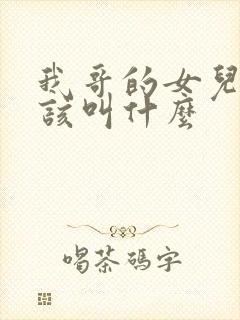 我哥的女兒
該叫什麼
喝茶碼字